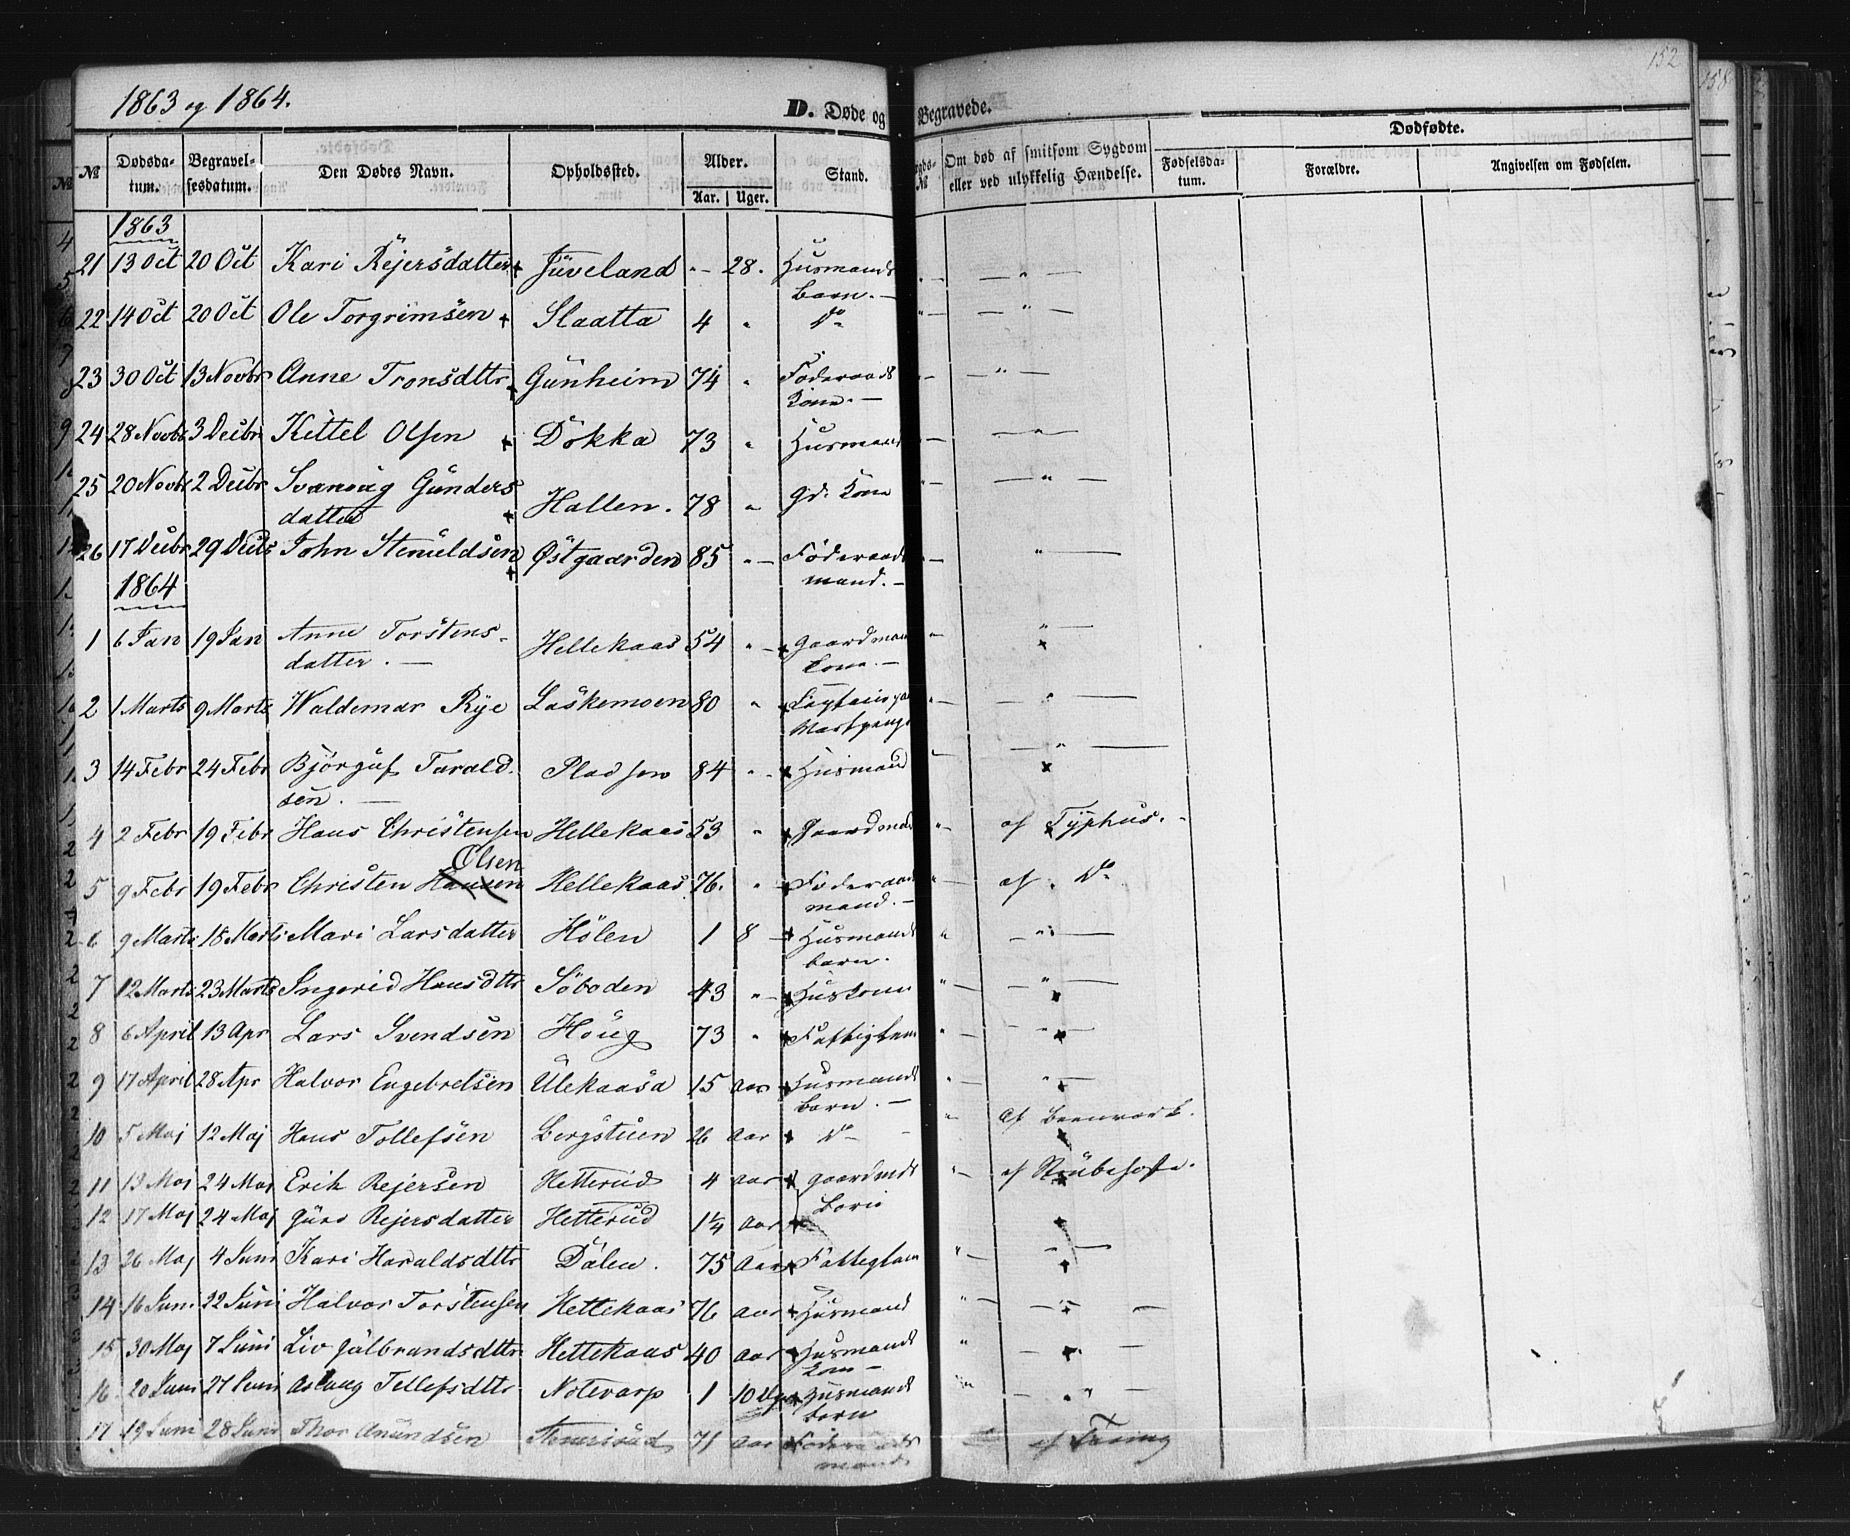 152
158
1863 og 1864.
D. Døde og Begravede.
№ Dødsdatum. Begravelsesdatum. Den Dødes Navn. Opholdssted. Alder. Aar. Uger. Stand. Om død af smitsom Sygdom eller ved ulykkelig Hændelse. Dødfødte. Fødselsdatum. Forældre. Angivelsen om Fødselen.
1863
21 13 Oct 20 Oct Kari Rejersdatter Juveland " 28. Husmands
Barn.
22 14 Oct 20 Oct Ole Torgrimsen Slaatta 4 " Do
23 30 Oct 13 Novbr Anne Tronsdttr Gunheim 74 " Föderaads
Kone.
24 28 Novbr 3 Decbr Kittel Olsen Dokka 73 " Husmand
25 20 Novbr 2 Decbr Svanaug Gunders
datter Hallen. 78 " Gd. Kone
26 17 Decbr 29 Decbr John Stenuldsen Østgaarden 85 " Föderaads
mand.
1864
1 6 Jan 19 Jan Anne Torstens-
datter. Hellekaas 54 " Gaardmand
Kone.
2 1 Marts 9 Marts Waldemar Rye Laskemoen 80 "
3 14 Febr 24 Febr Björguf Tarald-
sen. Pladsen 84 " Husmand
4 2 Febr 19 Febr Hans Christensen Hellekaas 53 " Gaardmand af Typhus.
Olsen
5 9 Febr 19 Febr Christen Hansen Hellekaas 76. " Föderaads af Do
mand.
6 9 Marts 18 Marts Mari Larsdatter Hölen 1 8 Husmands
barn.
7 12 Marts 23 Marts Ingerid Hansdttr Söboden 43 " Huskone
8 6 April 13 Apr Lars Svendsen Höug 73 " Fattiglem
9 17 April 28 Apr Halvor Engebretsen Ulekaasa 15 Aar Husmands
Barn.
10 5 Maj 12 Maj Hans Tollefsen Bergstuen 26 Aar Do Af
11 13 Maj 24 Maj Erik Rejersen Hetterud 4 Aar Gaardmds af Strübehoste.
Börn
12 17 Maj 24 Maj Guro Rejersdatter Hetterud 1¼ Aar
13 26 Maj 4 Juni Kari Haraldsdttr Dalen. 75 Aar Fattiglem
14 16 Juni 22 Juni Halvor Torstensen Hettekaas 76 Aar Husmand
15 30 Maj 7 Juni Liv Gulbrandsdttr Hettekaas 40 Aar Husmands
Kone
16 20 Juni 27 Juni Aslaug Tellefsdttr Notevarp 1 10 Uger Husmands
barn
17 19 Juni 28 Juni Thor Anundsen 71 Aar Föderaads af Tæring
mand